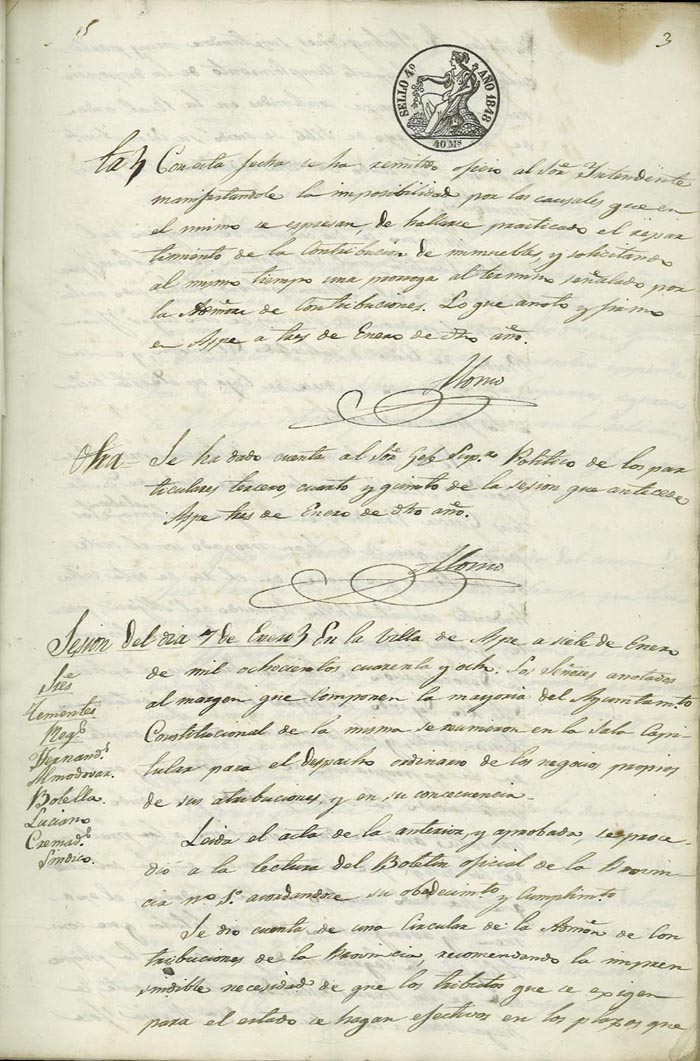 15
3
SELLO 4º AÑO 1848
40 Ms
Con esta fecha se ha remitido oficio al Sor. Yntendente
manifestandole la imposibilidad por las causales que en
el mismo se espresan, de hallarse practicado el repar
timiento de la Contribucion de inmuebles, y solicitando
al mismo tiempo una proroga al termino señalado por
la Admon. de Contribuciones. Lo que anoto y firmo
en Aspe a tres de Enero de dho año.
Otra= Se ha dado cuenta al Sor. Gefe Supr. Politico de los par
ticulares tercero, cuarto y quinto de la sesion que antecede
Aspe tres de Enero de dho año.
Sesion del dia 7 de Enero En la Villa de Aspe a siete de Enero
de mil ochocientos cuarenta y ocho: Los Señores anotados
al margen que componen la mayoria del Ayuntamto
Constitucional de la misma se reunieron en la Sala Capi-
tular para el despacho ordinario de los negocios propios
de sus atribuciones, y en su concecuencia.
Sres
Tenientes
Regs
Hernands
Almodovar.
Botella.
Luciano
Cremads
Sindico.
Leida el acta de la anterior, y aprobada, se proce-
dió a la lectura del Boletin oficial de la Provin-
cia nº 1º acordandose su obedecimto y cumplimto
Se dio cuenta de una Circular de la Admon de Con
tribuciones de la Provincia, recomendando la impren
sindible necesidad de que los tributos que se exigen
para el estado se hagan efectivos en los plazos que